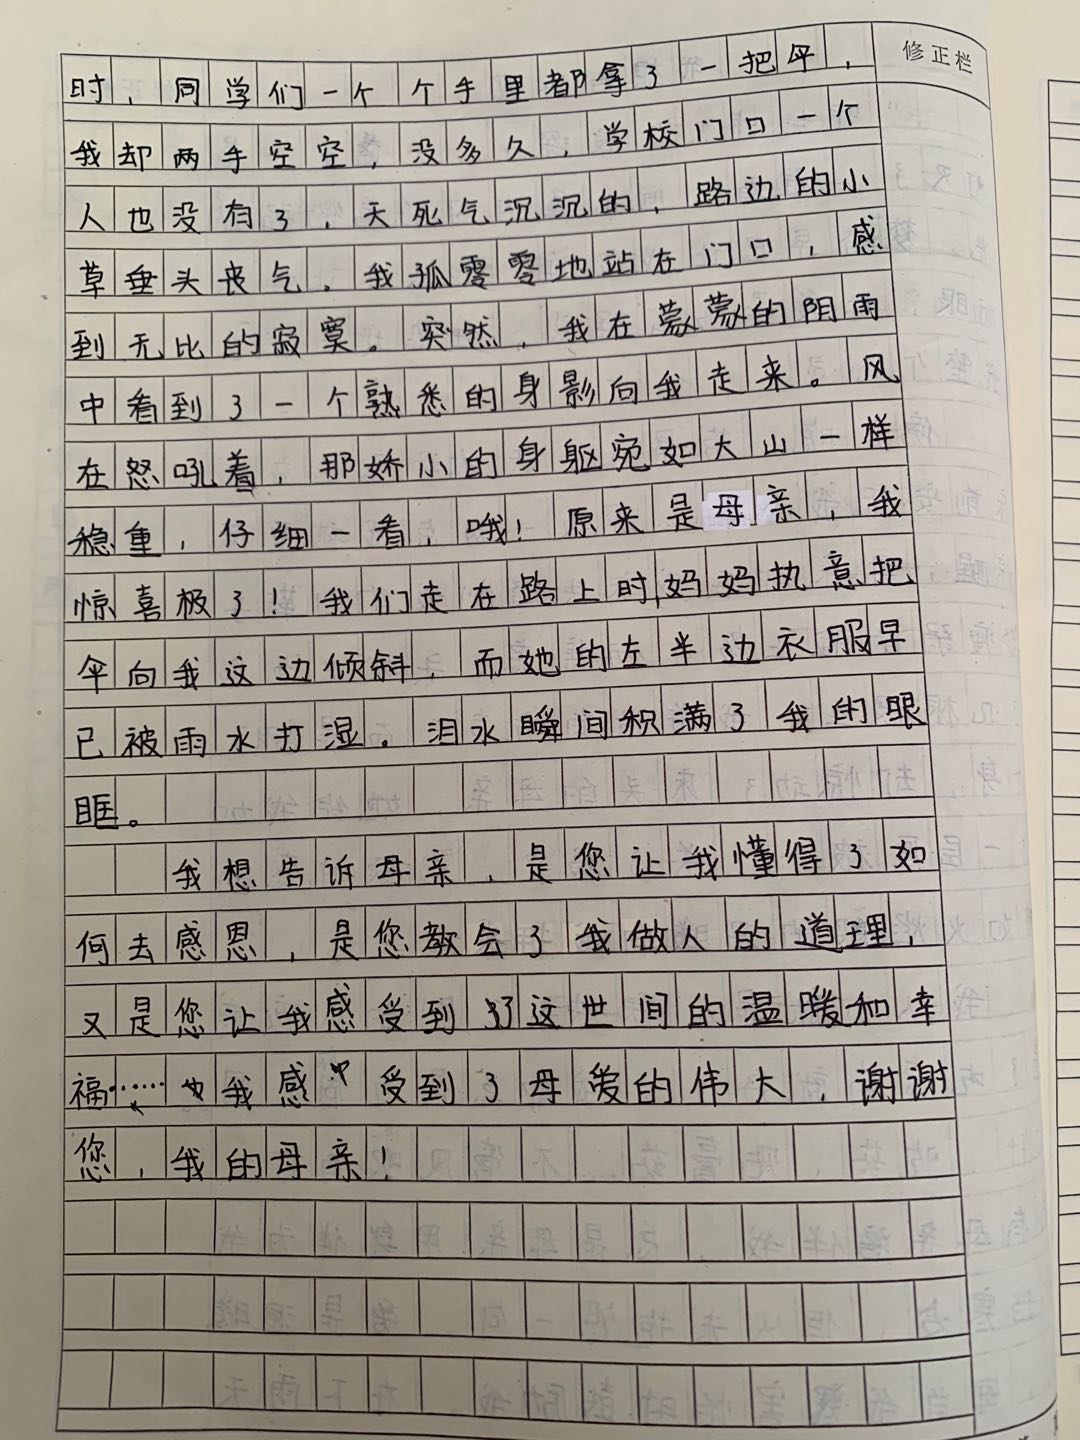 修正栏
时，同学们一个个手里都拿了一把伞，
我却两手空空，没多久，学校门口一个
人也没有了，天死气沉沉的，路边的小
草垂头丧气。我孤零零地站在门口，感
到无比的寂寞。突然，我在蒙蒙的阴雨
中看到了一个熟悉的身影向我走来。风
在怒吼着，那娇小的身躯宛如大山一样
稳重，仔细一看，哦！原来是母亲，我
惊喜极了！我们走在路上时，妈妈执意把
伞向我这边倾斜，而她的左半边衣服早
已被雨水打湿。泪水瞬间积满了我的眼
眶。
我想告诉母亲，是您让我懂得了如
何去感恩，是您教会了我做人的道理，
又是您让我感受到了这世间的温暖和幸
福……我感受到了母爱的伟大，谢谢
您，我的母亲！